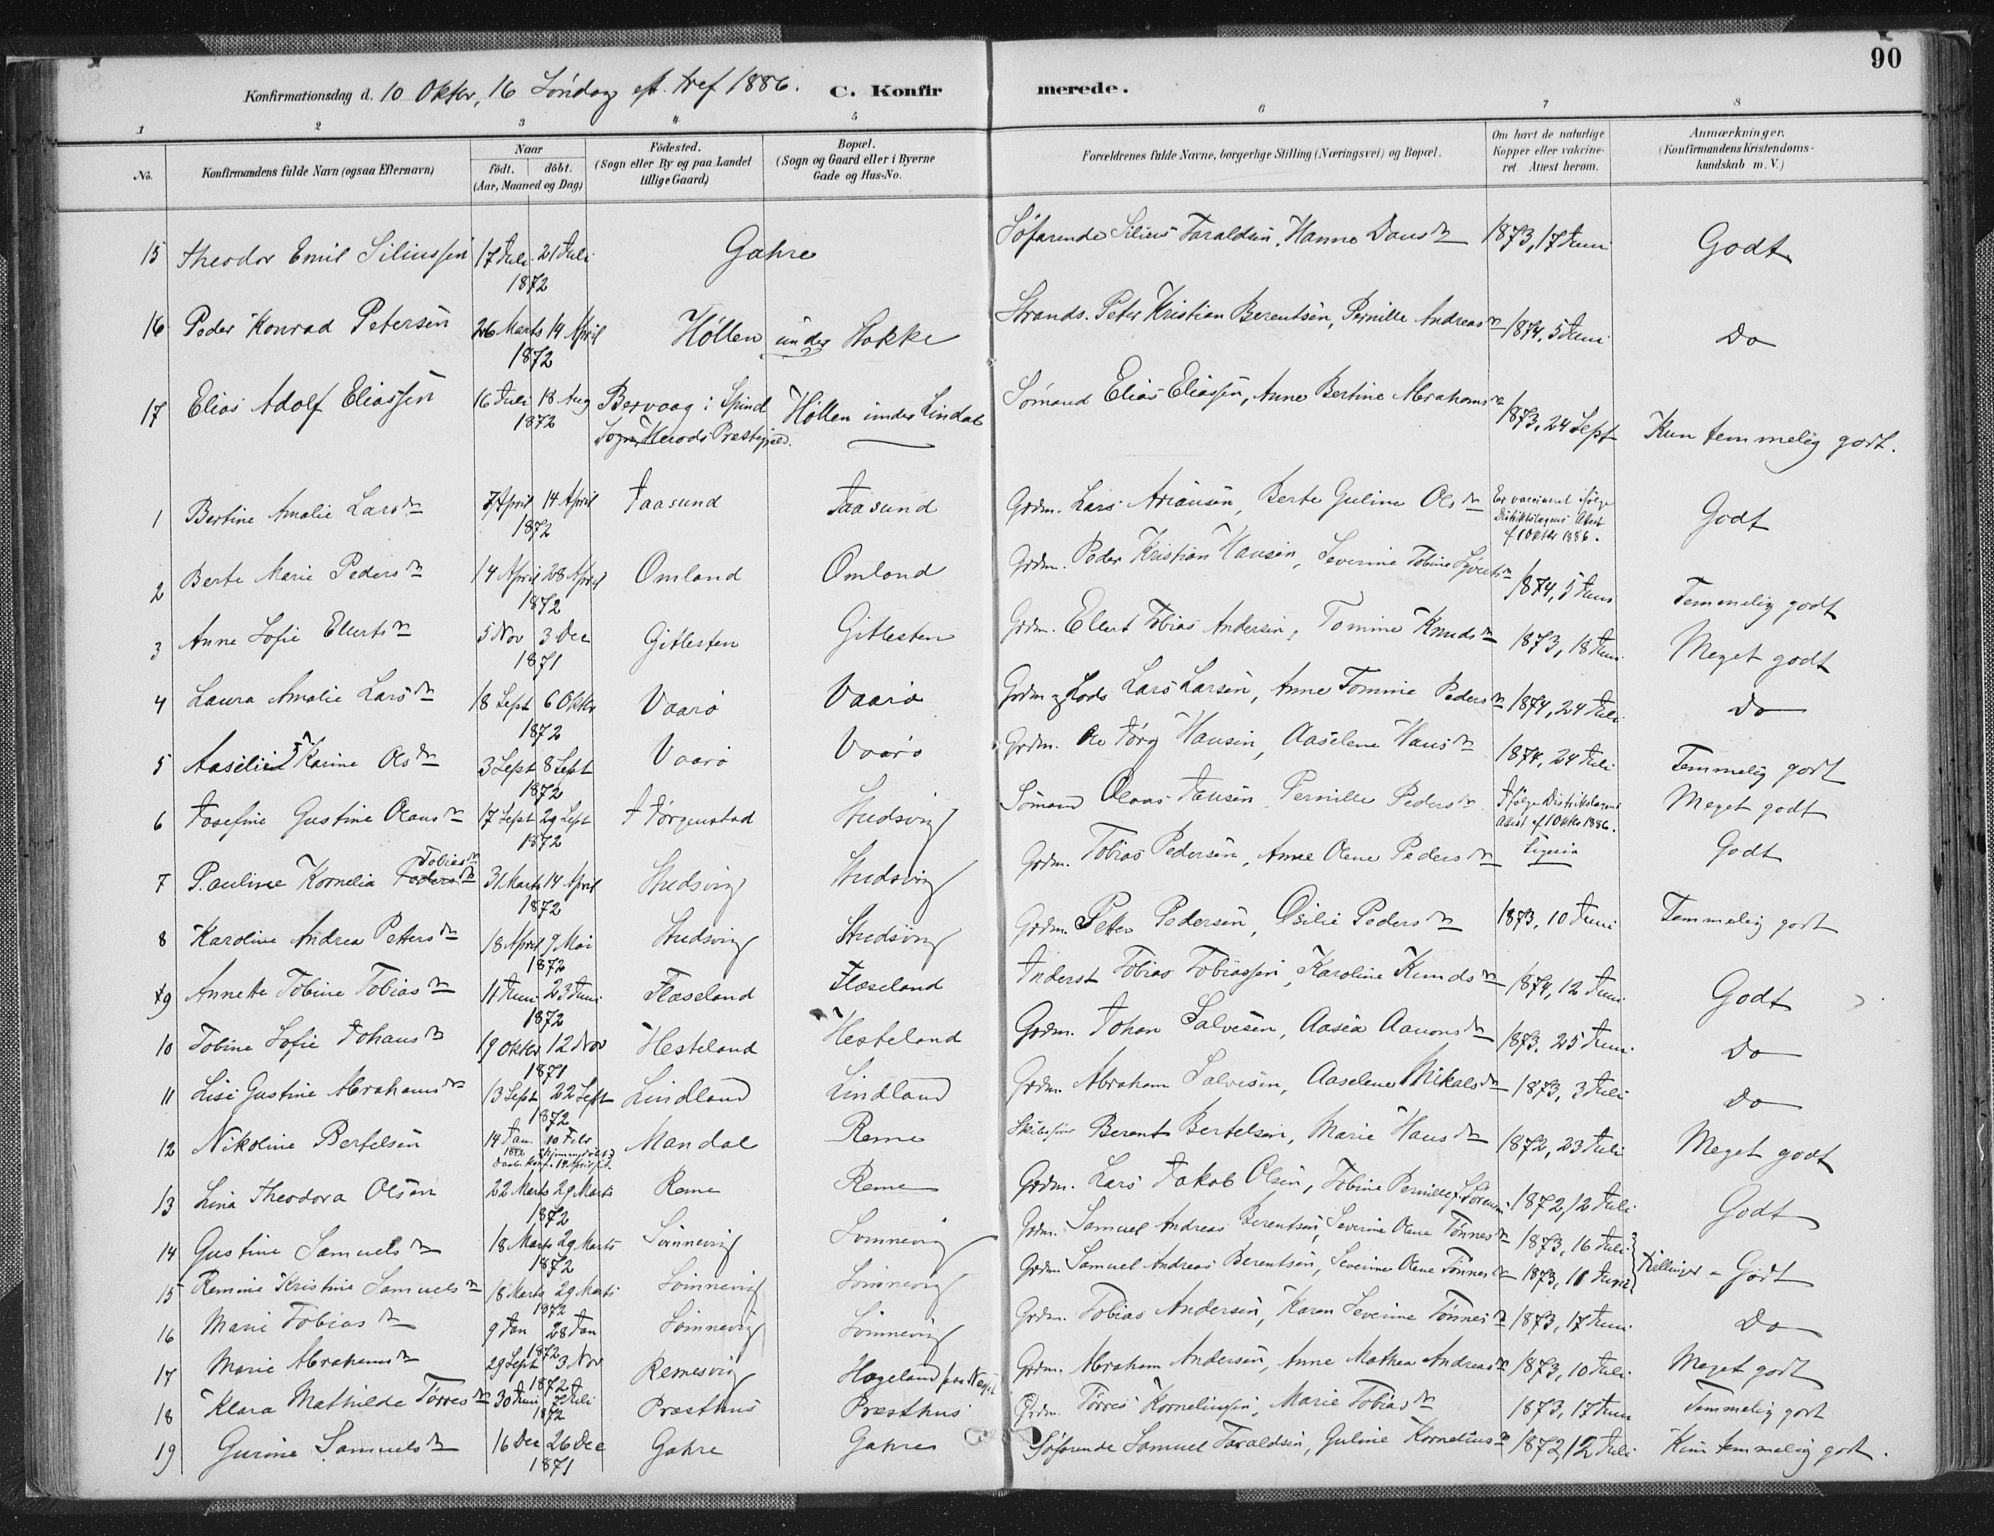 90
Konfirmationsdag d. 10 Oktbr, 16 Søndag eft. tref 1886. C. Konfirmerede.
1 2 3 4 5 6 7 8
No. Konfirmandens fulde Navn (ogsaa Efternavn) Naar født. døbt. (Aar, Maaned og Dag) Fødested. (Sogn eller By og paa Landet tillige Gaard) Bopæl. (Sogn og Gaard eller i Byerne Gade og Hus-No. Forældrenes fulde Navne, borgerlige Stilling (Næringsvei) og Bopæl. Om havt de naturlige Kopper eller vakcineret. Attest herom. Anmærkninger. (Konfirmandens Kristendomskundskab m. V.)
15 Theodor Emil Siliussen 17 Juli 21 Juli 1872 Gahre Søfarende Silius Taraldsen, Hanne Dansdr 1873, 17 Juni Godt
16 Peder Konrad Petersen 26 Marts 14 April 1872 Høllen under Hokke Strands. Peter Kristian Berentsen, Pernille Andreasdr 1874, 5 Juni Do
17 Elias Adolf Eliassen 16 Juli 18 Aug 1872 Bervaag i Spind Sogn, Herods Præstegjed. Høllen under Lindal Sømand Elias Eliassen, Anne Bertine Abrahamsdr 1873, 24 Sept Kun temmelig godt.
1 Bertine Amalie Larsdr 7 April 14 April 1872 Jaasund Jaasund Grdm. Lars Ariansen, Berte Guline Olsdr Er vaccineret ifølge Distriktslægens Attest af 1 Oktbr 1886. Godt
2 Berte Marie Pedersdr 14 April 28 April 1872 Omland Omland Grdm. Peder Kristian Hansen, Severine Tobine Syvertsdr 1874, 5 Juni Temmelig godt
3 Anne Sofie Ellertsdr 5 Nov 3 Dec 1871 Gitlesten Gitlesten Grdm. Ellert Tobias Andersen, Tomine Knudsdr 1873, 18 Juni Meget godt
4 Laura Amalie Larsdr 18 Sept 6 Oktbr 1872 Vaarø Vaarø Grdm og Lods Lars Larsen, Anne Tomine Pedersdr 1874, 24 Juli Do
5 Karine Olsdr 3 Sept 8 Sept 1872 Vaarø Vaarø Grdm. Ole Jørg Hansen, Aaselene Hansdr 1874, 24 Juli Temmelig godt
6 Josefine Gustine Olausdr 17 Sept 29 Sept 1872 Jørgenstad Studsvig Sømand Olaus Jansen, Pernille Pedersdr Ifølge Distriktslægens Attest af 1 Oktbr 1886. Meget godt
7 Pauline Kornelia Tobiasdr Pedersdr 31 Marts 14 April 1872 Studsvig Studsvig Grdm. Tobias Pedersen, Anne Olene Pedersdr Godt
8 Karoline Andrea Pettersdr 18 April 9 Mai 1872 Studsvig Studsvig Grdm. Petter Pedersen, Osilie Pedersdr 1873, 10 Juni Temmelig godt
9 Annette Tobine Tobiasdr 11 Juni 23 Juni 1872 Flaseland Flaseland Inderst Tobias Tobiassen, Karoline Knudsdr 1874, 12 Juni Godt
10 Tobine Sofie Johansdr 19 Oktbr 12 Nov 1871 Hesteland Hesteland Grdm. Johan Salvesen, Aasea Aanonsdr 1873, 25 Juni Do
11 Lise Gustine Abrahamsdr 13 Sept 22 Sept 1872 Lindland Lindland Grdm. Abraham Salvesen, Aaselene Mikalsdr 1873, 3 Juli Do
12 Nikoline Bertelsen 14 Jan. 1872 10 Febr Hjemmedøbt Daab. Konf. 14 April Mandal Reme Skibsfører Berent Bertelsen, Marie Hansdr 1872, 23 Juli Meget godt
13 Lina Theodora Olsen 22 Marts 29 Marts 1872 Reme Reme Grdm. Lars Jakob Olsen, Tobine Pernille f. Sørensen 1872, 12 Juli Godt
14 Gustine Samuelsdr 18 Marts 29 Marts 1872 Sønnevig Sønnevig Grdm. Samuel Andreas Berentsen, Severine Olene Tønnesdr 1873, 16 Juli
15 Remine Kristine Samuelsdr 18 Marts 29 Marts 1872 Sønnevig Sønnevig Grdm. Samuel Andreas Berentsen, Severine Olene Tønnesdr 1873, 11 Juni Tvillinger - Godt
16 Marie Tobiasdr 9 Jan 28 Jan 1872 Sønnevig Sønnevig Grdm. Tobias Andersen, Karen Severine Tønnesdr 1873, 17 Juni Do
17 Marie Abrahamsdr 29 Sept 3 Nov 1872 Remesvig Hageland paa Næsset Grdm. Abraham Andersen, Anne Mathea Andreasdr 1873, 10 Juli Meget godt
18 Klara Mathilde Tørresdr 30 Juni 7 Juli 1872 Præsthus Præsthus Grdm. Tørres Korneliussen, Marie Tobiasdr 1873, 17 Juni Temmelig godt
19 Gurine Samuelsdr 16 Dec 26 Dec 1871 Gahre Gahre Søfarende Samuel Taraldsen, Guline Korneliusdr 1872, 12 Juli Kun temmelig godt.